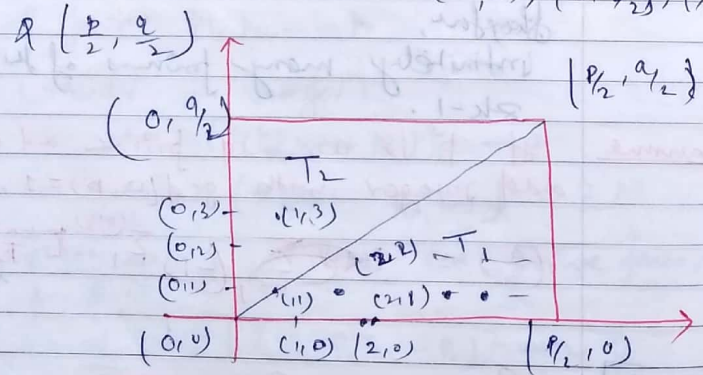 R (p/2, q/2)
(p/2, q/2)
(0, q/2)
T2
(0,3) (1,3)
(0,2) (2,2) T1
(0,1) (1,1) (2,1)
(0,0) (1,0) (2,0) (p/2, 0)